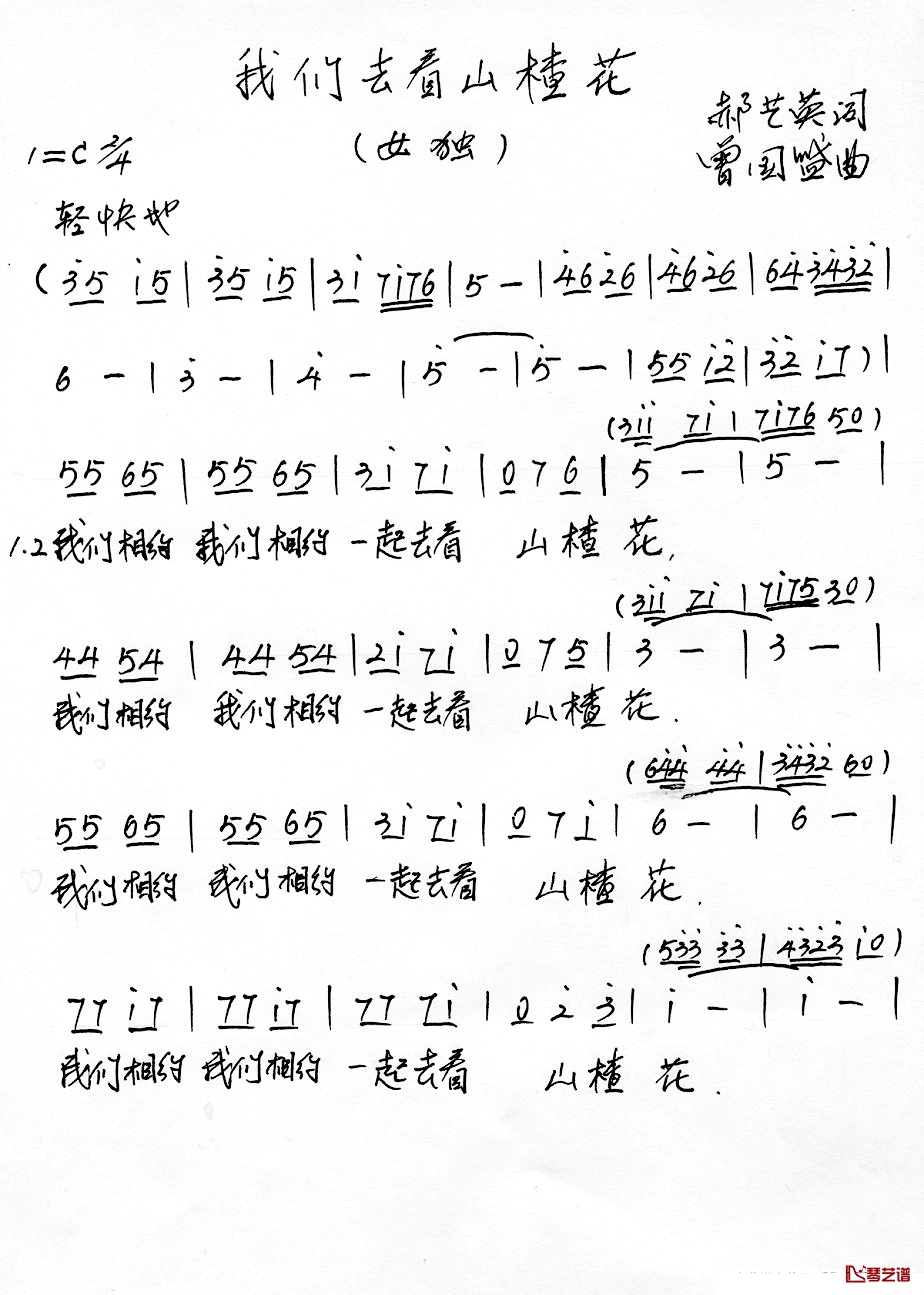 我们去看山楂花
(女独)
郝艺英词
曾国盛曲
1=C 2/4
轻快地
(3̇5 i5 | 3̇5 i5 | 3i 7i76 | 5 - | 4̇6 2̇6 | 4̇6 2̇6 | 64̇ 3̇4̇3̇2̇ |
6 - | 3̇ - | 4̇ - | 5̇ - | 5̇ - | 55 i2̇ | 3̇2̇ i7) |
(3ii 7i | 7i76 50)
55 65 | 55 65 | 3i 7i | 0 7 6 | 5 - | 5 - |
1.2 我们相约 我们相约 一起去看 山楂花,
(3ii 7i | 7i75 30)
44 54 | 44 54 | 2i 7i | 0 7 5 | 3 - | 3 - |
我们相约 我们相约 一起去看 山楂花.
(64̇4̇ 4̇4̇ | 3̇4̇3̇2̇ 60)
55 65 | 55 65 | 3i 7i | 0 7 i | 6 - | 6 - |
我们相约 我们相约 一起去看 山楂花.
(53̇3̇ 3̇3̇ | 4̇3̇2̇3̇ i0)
77 i7 | 77 i7 | 77 7i | 0 2̇ 3̇ | i - | i - |
我们相约 我们相约 一起去看 山楂花.
琴艺谱